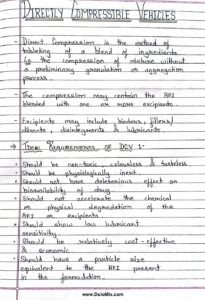 DIRECTLY COMPRESSIBLE VEHICLES
- Direct Compression is the method of
tabletting of a blend of ingredients
by the compression of mixture without
a preliminary granulation or aggregation
process.
- The compression may contain the API
blended with one or more excipients.
- Excipients may include binders, fillers/
diluents, disintegrants & lubricants.
→ Ideal Requirements of DCV :-
- Should be non-toxic, colourless & tasteless
- Should be physiologically inert
- Should not have deleterious effect on
bioavailability of drug.
- Should not accelerate the chemical
or physical degradation of the
API or excipients.
- Should show low lubricant
sensitivity.
- Should be relatively cost-effective
& economic.
- Should have a particle size
equivalent to the API present
in the formulation.
www.DuloMix.com